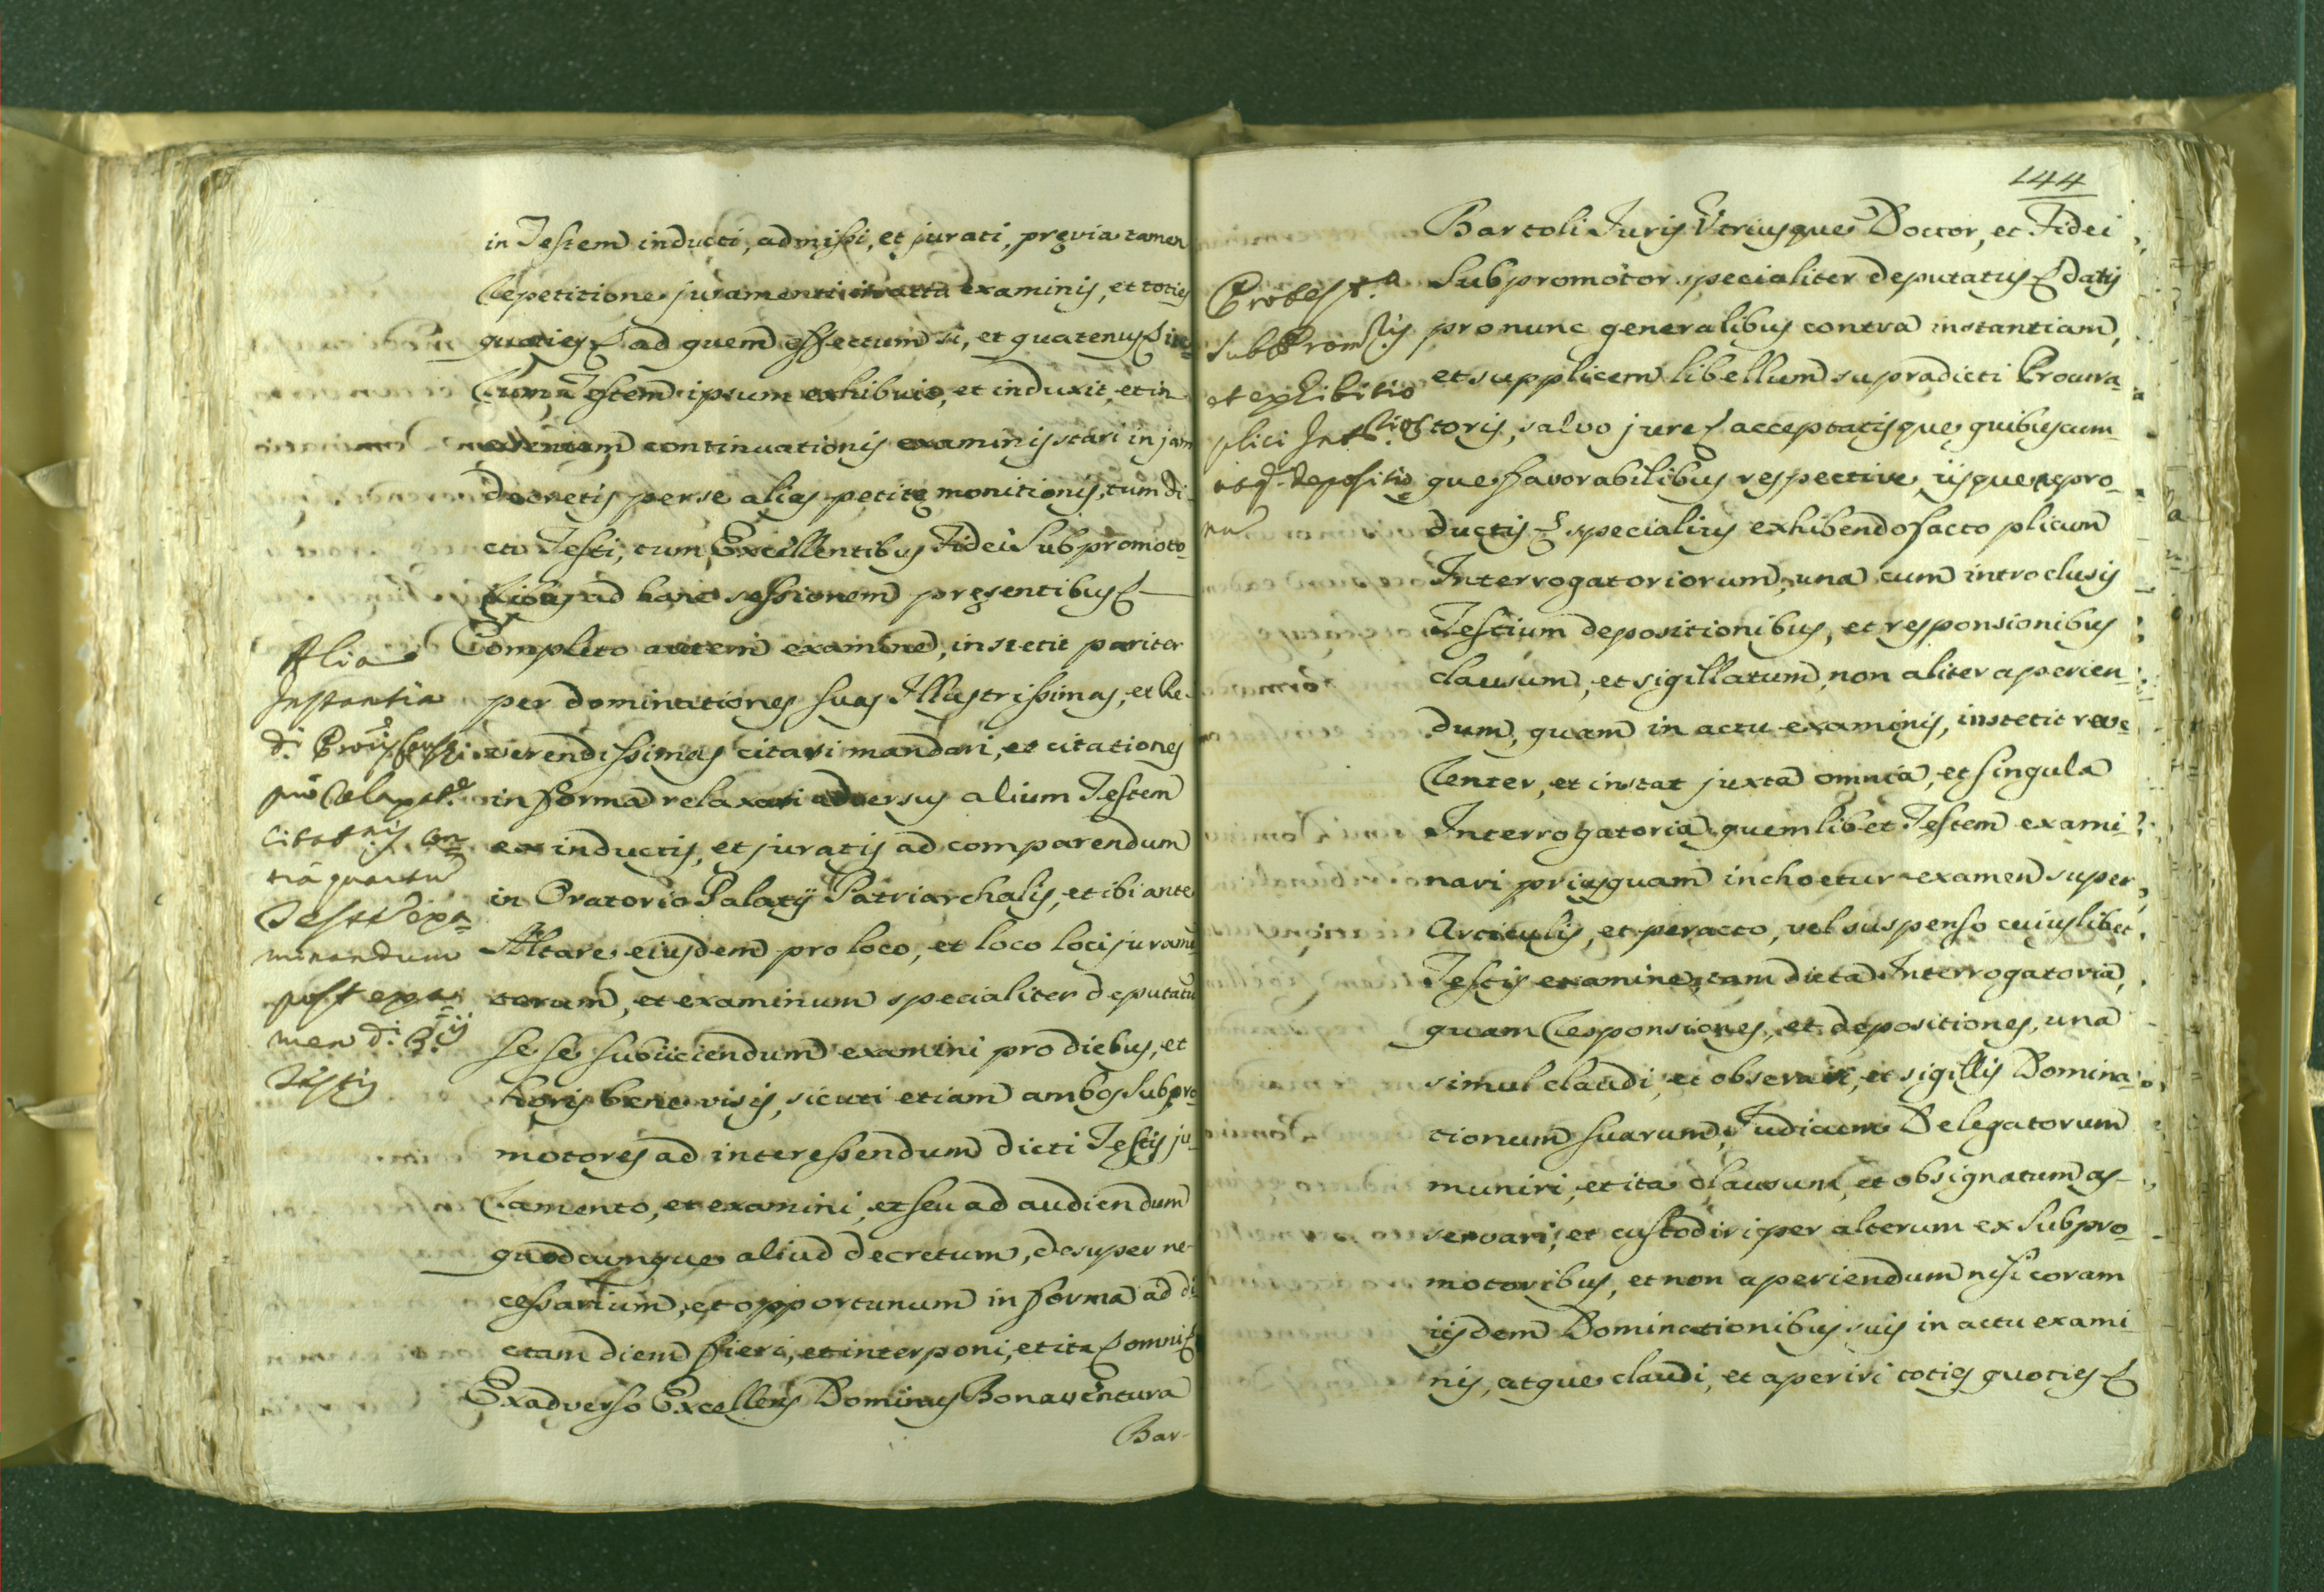 in Testem inducti, admissi, et jurati, pręvia tamen
repetitione juramenti in actu examinis, et toties
quoties ad quem effectum si, et quatenus
Testem ipsum exhibuit, et induxit, et in
eventum continuationis examinis stari in jam
decretis per se alias petitę monitionis, tum di-
cto Testi, tum Excellentibus Fidei Subpromoto-
ribus ad hanc sessionem pręsentibus
Completo autem examine, instetit pariter
per dominationes suas Illustrissimas, et Re-
verendissimas citari mandari, et citationes
in forma relaxari adversus alium Testem
ex inductis, et juratis ad comparendum
in Oratorio Palatij Patriarchalis, et ibi ante
Altare eiusdem pro loco, et loco loci juramen
torum, et examinum specialiter deputatu
se se subijciendum examini pro diebus, et
horis bene visis, sicuti etiam ambos Subpro-
motores ad interessendum dicti Testis ju-
ramento, et examini, et seu ad audiendum
quodcunque aliud decretum, desuper ne-
cessarium, et opportunum in forma ad di-
ctam diem fieri, et interponi, et ita omni
Exadverso Excellens Dominus Bonaventura
Bar-
Alia
Instantia
citat.nis con
tra quartu
Test. exa
minandum
post exa
men d. 3.ij
Testis
144
Bartoli Juris Vtriusque Doctor, et Fidei
Subpromotor specialiter deputatus datis
pro nunc generalibus contra instantiam,
et supplicem libellum supradicti Procura
toris, salvo jure acceptatisque quibuscum-
que favorabilibus respective, ijsque repro-
ductis specialius exhibendo facto plicum
Interrogatoriorum, una cum introclusis
Testium depositionibus, et responsionibus
clausum, et sigillatum, non aliter aperien-
dum, quam in actu examinis, instetit reve
renter, et instat juxta omnia, et singula
Interrogatoria quemlibet Testem exami
nari priusquam inchoetur examen super
Articulis, et peracto, vel suspenso cuiuslibet
Testis examine, tam dicta Interrogatoria,
quam responsiones, et depositiones, una
simul claudi, et observari, et sigillis Domina-
tionum suarum Judicum Delegatorum
muniri, et ita clausum, et obsignatum as-
servari, et custodiri per alterum ex Subpro-
motoribus, et non aperiendum nisi coram
ijsdem Dominationibus suis in actu exami
nis, atque claudi, et aperiri toties quoties
Protest.a
Subprom.ris
et exhibitio
plici